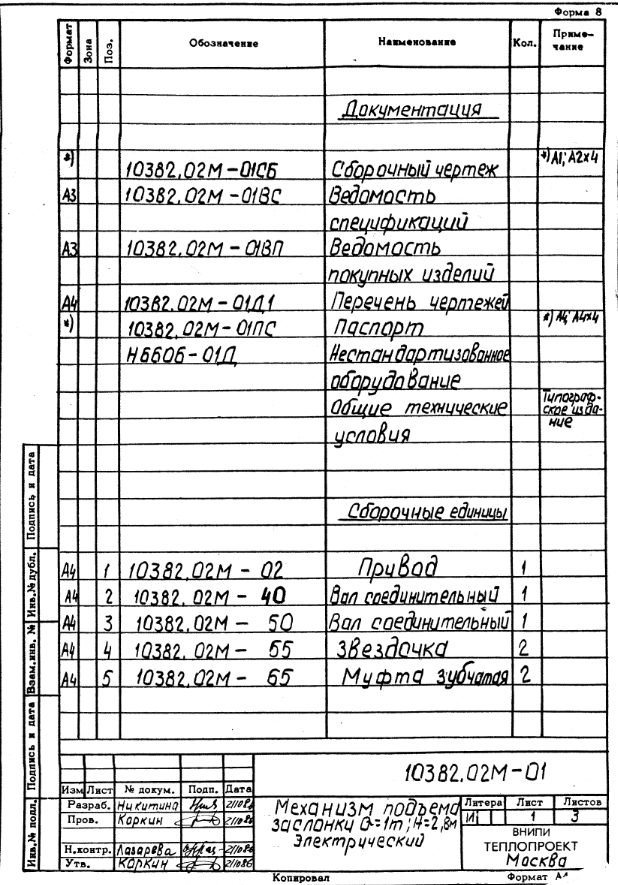 Форма 8
Формат Зона Поз. Обозначение Наименование Кол. Приме-
чание
Документация
*) 10382.02М-01СБ Сборочный чертеж *) А1; А2х4
А3 10382.02М-01ВС Ведомость
спецификаций
А3 10382.02М-01ВП Ведомость
покупных изделий
А4 10382.02М-01Д1 Перечень чертежей
*) 10382.02М-01ПС Паспорт *) А4; А4х4
Н6606-01Д Нестандартизованное
оборудование
Общие технические Типограф-
ское изда-
ние
условия
Сборочные единицы
А4 1 10382.02М - 02 Привод 1
А4 2 10382.02М - 40 Вал соединительный 1
А4 3 10382.02М - 50 Вал соединительный 1
А4 4 10382.02М - 55 Звездочка 2
А4 5 10382.02М - 65 Муфта зубчатая 2
Подпись и дата
Инв.№ дубл.
Взам.инв. №
Подпись и дата
Инв.№ подл.
10382.02М-01
Изм Лист № докум. Подп. Дата
Разраб. Никитина
Пров. Коркин
Н.контр. Лазарева
Утв. Коркин
Механизм подъема
заслонки Q=1т; Н=2,8м
Электрический
Литера Лист Листов
И 1 3
ВНИПИ
ТЕПЛОПРОЕКТ
Москва
Копировал Формат А4